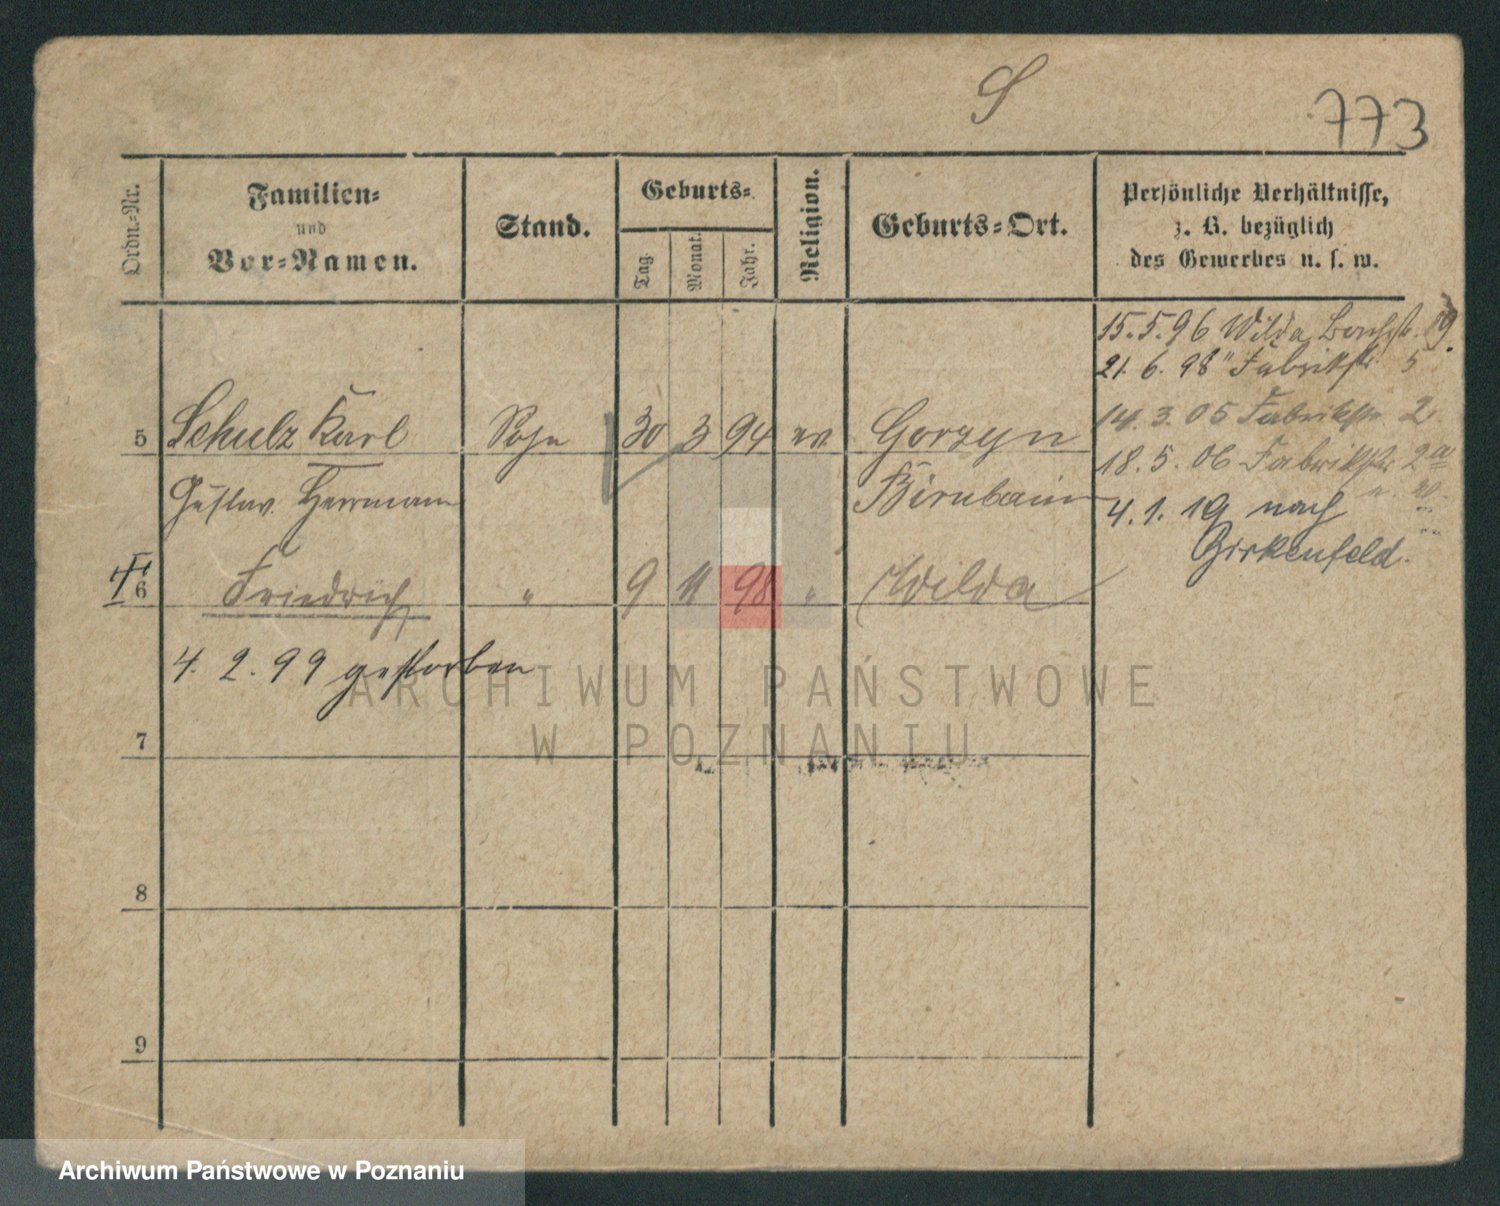 S
773
Ordn.-Nr.
Familien-
und
Vor-Namen.
Stand.
Geburts-
Tag.
Monat.
Jahr.
Religion.
Geburts-Ort.
Persönliche Verhältnisse,
z. B. bezüglich
des Gewerbes u. s. w.
15.5.96 Wilda 19.
21.6.98 " Fabrikstr. 5
5 Schulz Karl Sohn 30 3 94 ev Gorzyn
14.3.05 Fabrikstr. 2
Gustav Herrmann Birnbaum
18.5.06 Fabrikstr. 2a
4.1.19 nach
Birkenfeld.
6 Friedrich " 9 11 98 " Wilda
4.2.99 gestorben
7
8
9
ARCHIWUM PAŃSTWOWE
W POZNANIU
Archiwum Państwowe w Poznaniu